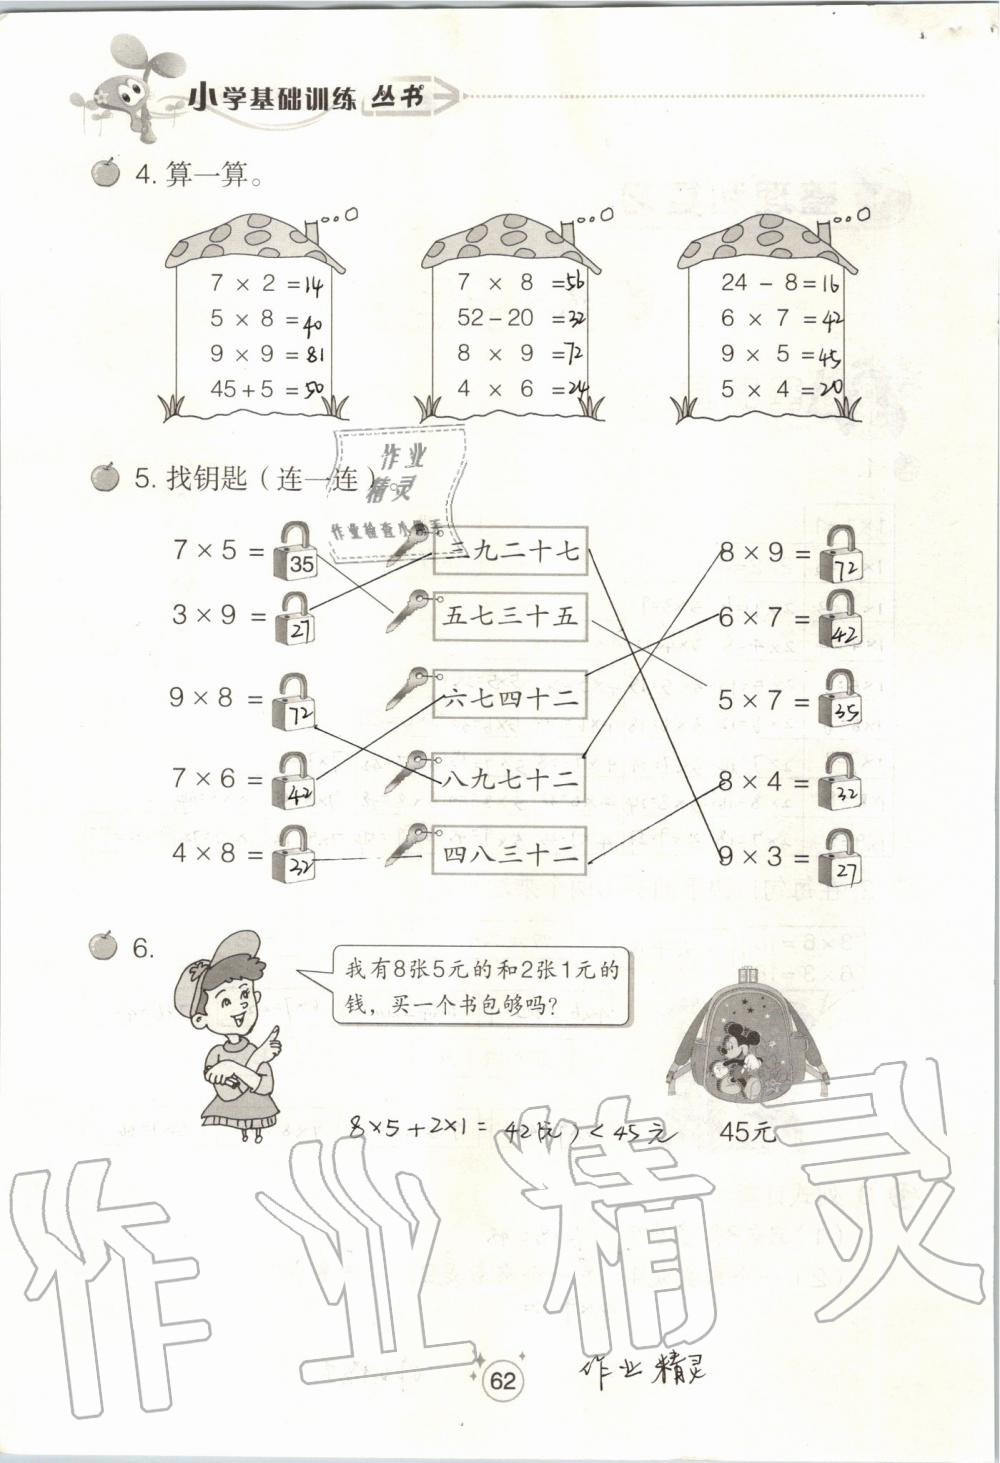 小学基础训练 丛书
4. 算一算。
7 × 2 =14
5 × 8 =40
9 × 9 =81
45+5 =50
7 × 8 =56
52-20 =32
8 × 9 =72
4 × 6 =24
24 - 8=16
6 × 7 =42
9 × 5 =45
5 × 4 =20
5. 找钥匙（连一连）。
作业
精灵
作业检查小帮手
7 × 5 = 35 三九二十七 8 × 9 = 72
3 × 9 = 27 五七三十五 6 × 7 = 42
9 × 8 = 72 六七四十二 5 × 7 = 35
7 × 6 = 42 八九七十二 8 × 4 = 32
4 × 8 = 32 四八三十二 9 × 3 = 27
6.
我有8张5元的和2张1元的
钱，买一个书包够吗？
8×5+2×1= 42(元) < 45元
45元
作业精灵
作业精灵
62